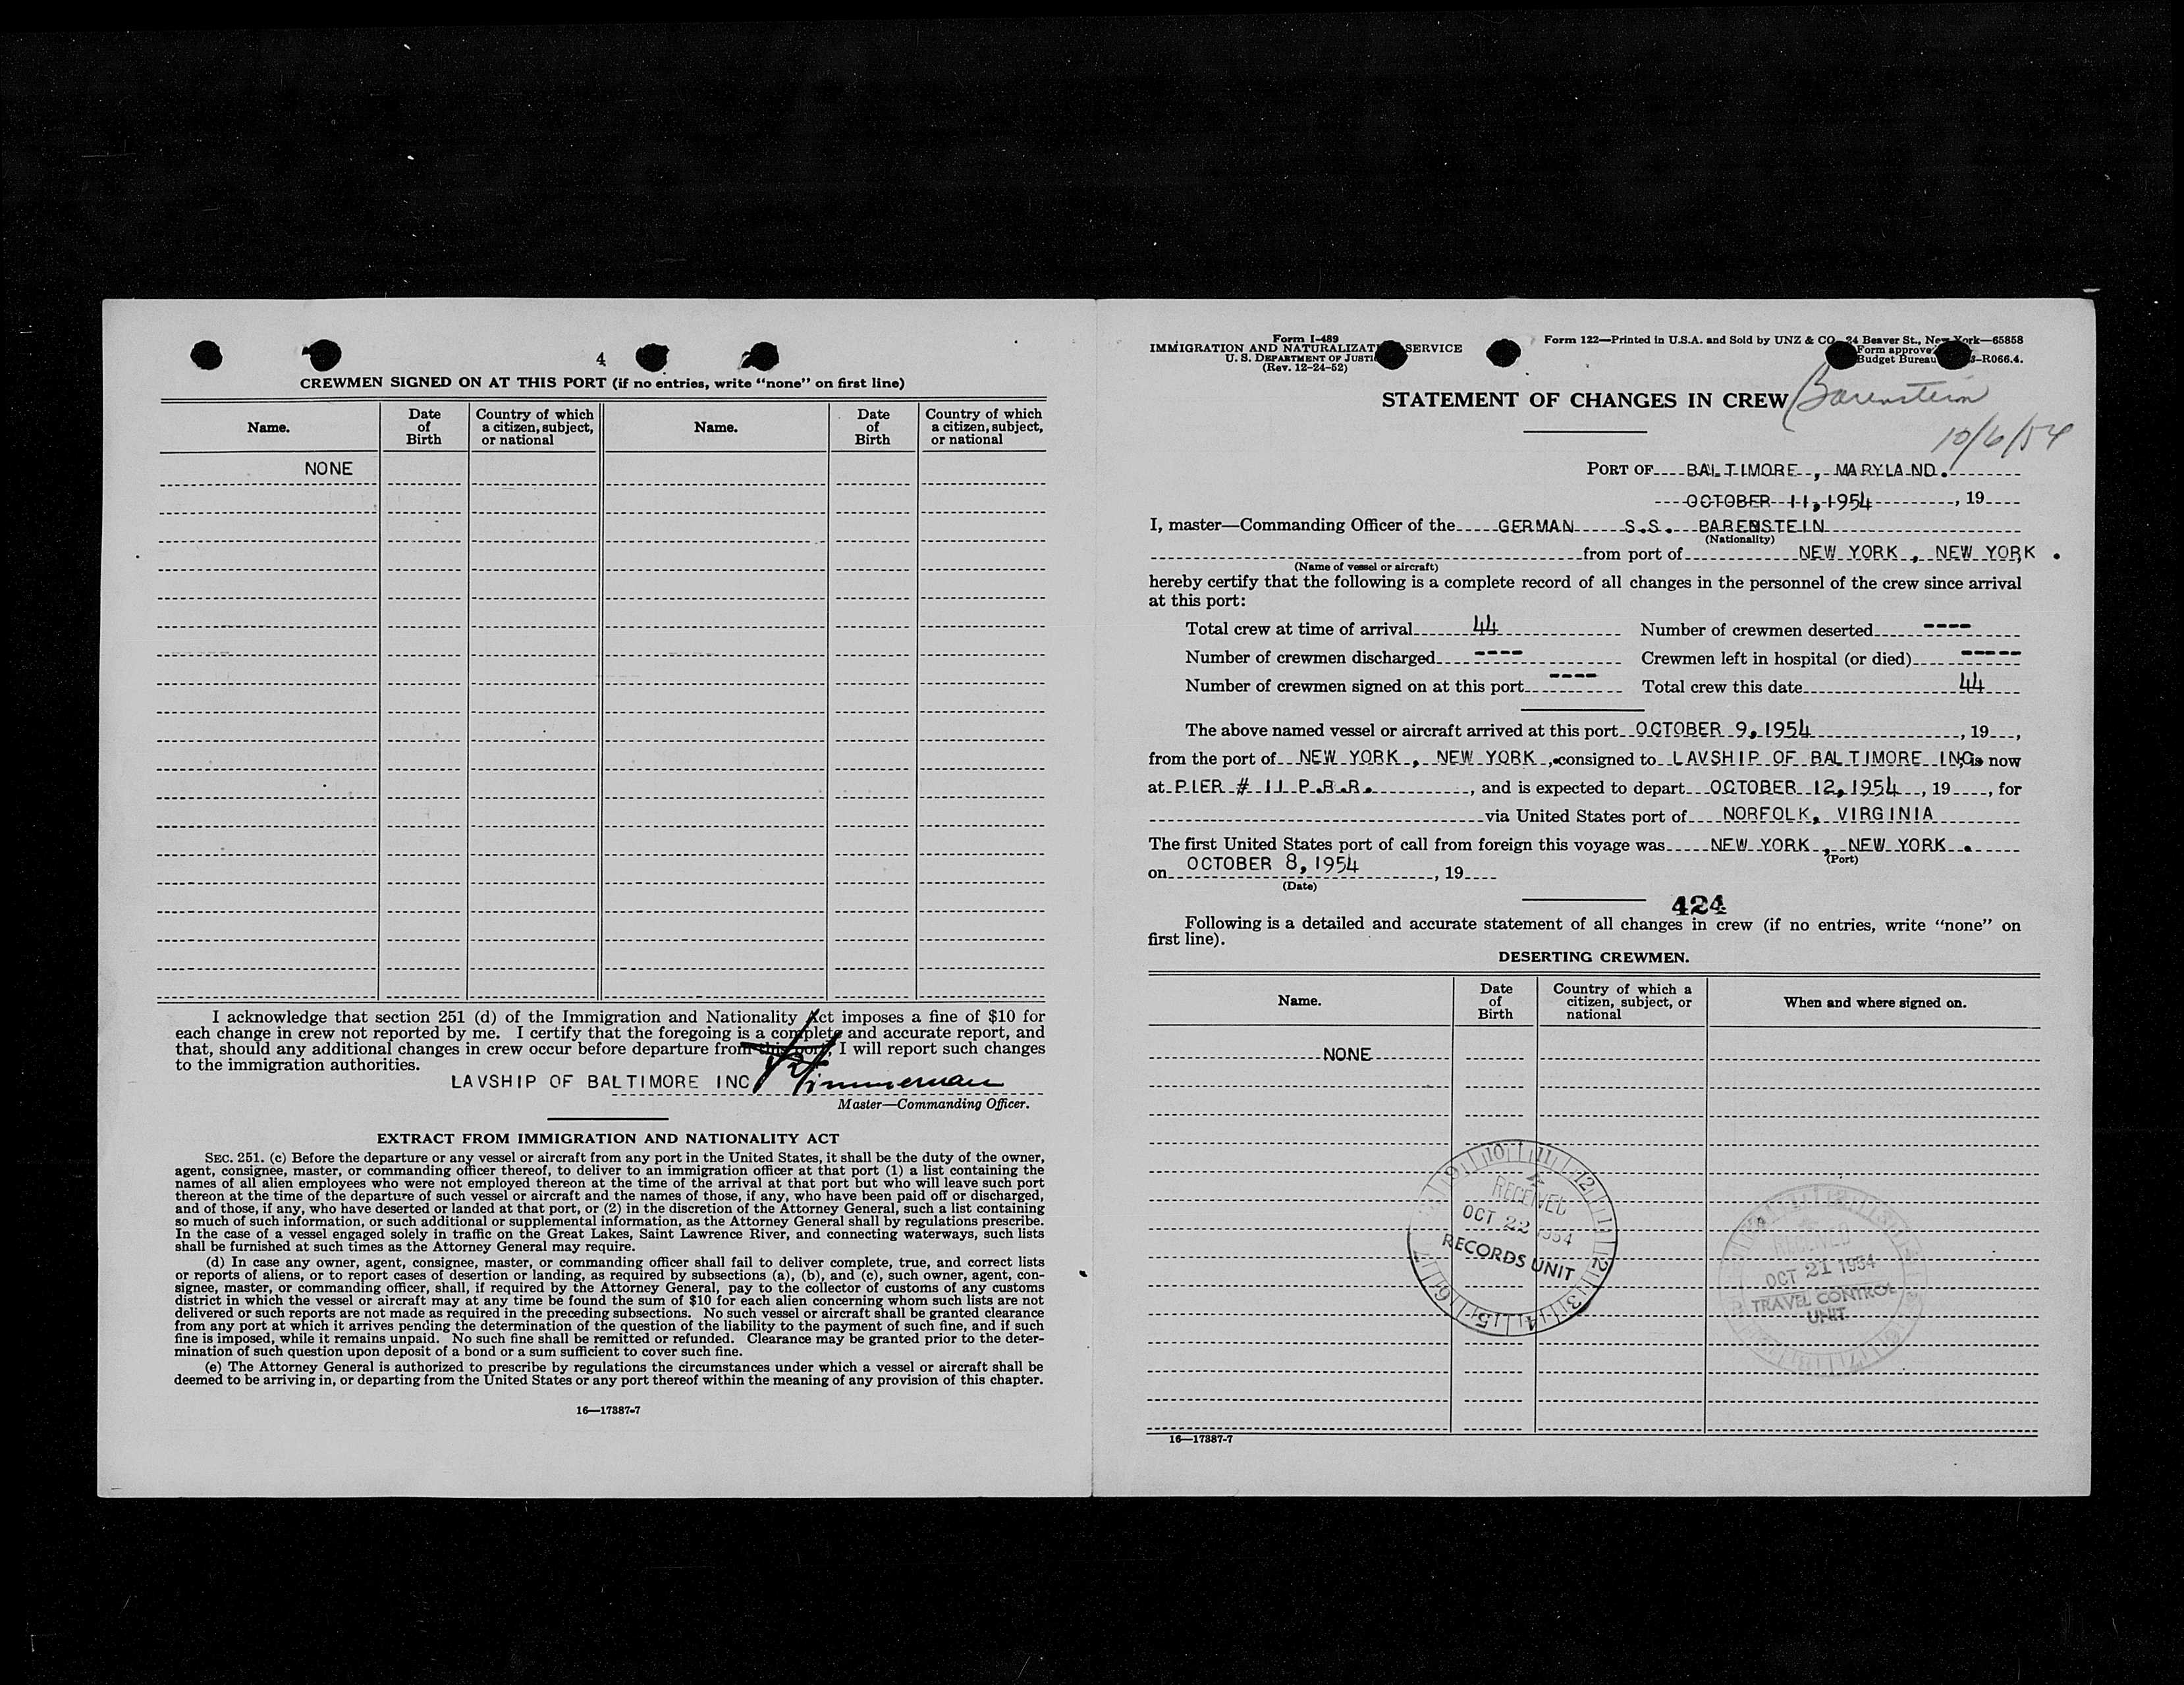 4
CREWMEN SIGNED ON AT THIS PORT (if no entries, write “none” on first line)
Name. Date of Birth Country of which a citizen, subject, or national Name. Date of Birth Country of which a citizen, subject, or national
NONE
I acknowledge that section 251 (d) of the Immigration and Nationality Act imposes a fine of $10 for
each change in crew not reported by me. I certify that the foregoing is a complete and accurate report, and
that, should any additional changes in crew occur before departure from this port, I will report such changes
to the immigration authorities.
LAVSHIP OF BALTIMORE INC Zimmerman
Master—Commanding Officer.
EXTRACT FROM IMMIGRATION AND NATIONALITY ACT
SEC. 251. (c) Before the departure or any vessel or aircraft from any port in the United States, it shall be the duty of the owner,
agent, consignee, master, or commanding officer thereof, to deliver to an immigration officer at that port (1) a list containing the
names of all alien employees who were not employed thereon at the time of the arrival at that port but who will leave such port
thereon at the time of the departure of such vessel or aircraft and the names of those, if any, who have been paid off or discharged,
and of those, if any, who have deserted or landed at that port, or (2) in the discretion of the Attorney General, such a list containing
so much of such information, or such additional or supplemental information, as the Attorney General shall by regulations prescribe.
In the case of a vessel engaged solely in traffic on the Great Lakes, Saint Lawrence River, and connecting waterways, such lists
shall be furnished at such times as the Attorney General may require.
(d) In case any owner, agent, consignee, master, or commanding officer shall fail to deliver complete, true, and correct lists
or reports of aliens, or to report cases of desertion or landing, as required by subsections (a), (b), and (c), such owner, agent, con-
signee, master, or commanding officer, shall, if required by the Attorney General, pay to the collector of customs of any customs
district in which the vessel or aircraft may at any time be found the sum of $10 for each alien concerning whom such lists are not
delivered or such reports are not made as required in the preceding subsections. No such vessel or aircraft shall be granted clearance
from any port at which it arrives pending the determination of the question of the liability to the payment of such fine, and if such
fine is imposed, while it remains unpaid. No such fine shall be remitted or refunded. Clearance may be granted prior to the deter-
mination of such question upon deposit of a bond or a sum sufficient to cover such fine.
(e) The Attorney General is authorized to prescribe by regulations the circumstances under which a vessel or aircraft shall be
deemed to be arriving in, or departing from the United States or any port thereof within the meaning of any provision of this chapter.
16—17887-7
Form I-489
IMMIGRATION AND NATURALIZATI SERVICE
U. S. DEPARTMENT OF JUSTI
(Rev. 12-24-52)
Form 122—Printed in U.S.A. and Sold by UNZ & CO 24 Beaver St., New York—65858
Form approve
Budget Bureau -R066.4.
STATEMENT OF CHANGES IN CREW Barenstein
10/6/54
PORT OF BALTIMORE, MARYLAND.
OCTOBER 11, 1954, 19
I, master—Commanding Officer of the GERMAN S.S. BARENSTEIN
(Nationality)
from port of NEW YORK, NEW YORK.
(Name of vessel or aircraft)
hereby certify that the following is a complete record of all changes in the personnel of the crew since arrival
at this port:
Total crew at time of arrival 44 Number of crewmen deserted ----
Number of crewmen discharged ---- Crewmen left in hospital (or died) -----
Number of crewmen signed on at this port ---- Total crew this date 44
The above named vessel or aircraft arrived at this port OCTOBER 9, 1954, 19,
from the port of NEW YORK, NEW YORK, consigned to LAVSHIP OF BALTIMORE INC, is now
at PIER # 11 P.R.R., and is expected to depart OCTOBER 12, 1954, 19, for
via United States port of NORFOLK, VIRGINIA
The first United States port of call from foreign this voyage was NEW YORK, NEW YORK.
(Port)
on OCTOBER 8, 1954, 19
(Date)
424
Following is a detailed and accurate statement of all changes in crew (if no entries, write “none” on
first line).
DESERTING CREWMEN.
Name. Date of Birth Country of which a citizen, subject, or national When and where signed on.
NONE
RECEIVED
OCT 22 1954
RECORDS UNIT
RECEIVED
OCT 21 1954
TRAVEL CONTROL
UNIT
16—17887-7